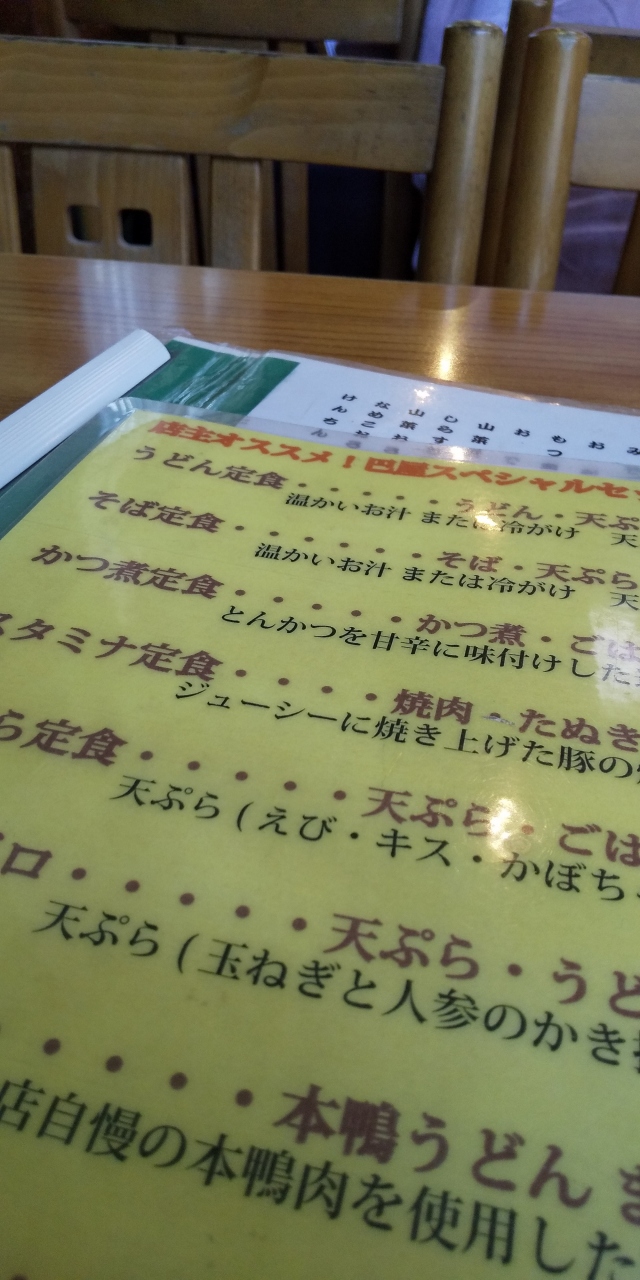 店主オススメ！巴屋スペシャルセ
うどん定食・・・・・・うどん・天ぷ
温かいお汁 または冷がけ 天
そば定食・・・・・・そば・天ぷら
温かいお汁 または冷がけ 天
かつ煮定食・・・・・かつ煮・ごは
とんかつを甘辛に味付けした
スタミナ定食・・・・焼肉・たぬき
ジューシーに焼き上げた豚の
ら定食・・・・・天ぷら・ごは
天ぷら(えび・キス・かぼち
ロ・・・・・天ぷら・うど
天ぷら(玉ねぎと人参のかき
・・・・・本鴨うどん ま
店自慢の本鴨肉を使用した